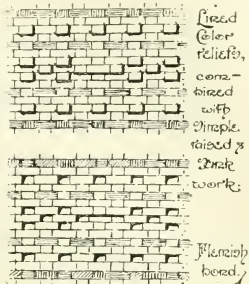 Color
reliefs,
com-
bined
with
Simple
raised &
Sunk
work;
Flemish
bond.